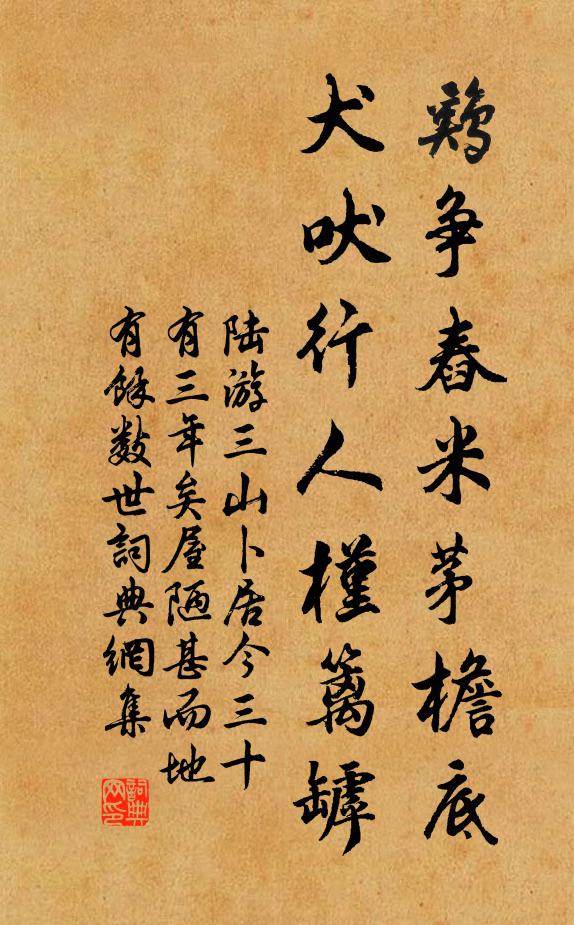 鷄争舂米茅檐底
犬吠行人槿篱罅
陆游三山卜居今三十
有三年矣屋陋甚而地
有餘数世詞典網集
詞典网印